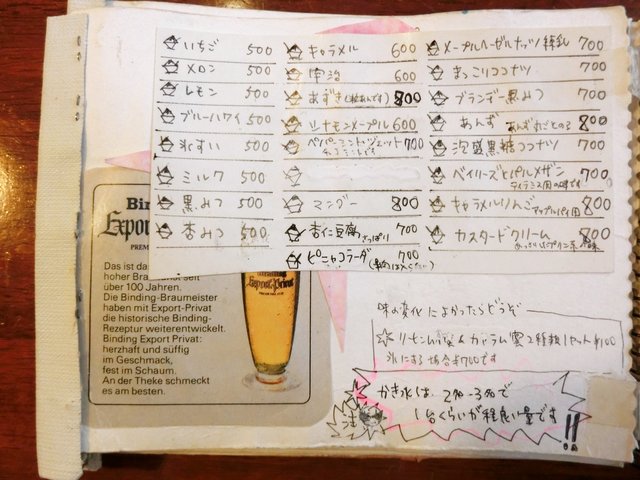 いちご 500
メロン 500
レモン 500
ブルーハワイ 500
氷すい 500
ミルク 500
黒みつ 500
杏みつ 500
キャラメル 600
宇治 600
あずき(粒あんです) 800
シナモンメープル 600
ペパーミント・ジェット 700
チョコミントです
マンゴー 800
杏仁豆腐 さっぱり 700
ピニャコラーダ 700
メープルヘーゼルナッツ練乳 700
まっこりココナツ 700
ブランデー黒みつ 700
あんず あんず丸ごとのる 800
泡盛黒糖ココナツ 700
ベイリーズとパルメザン 700
ティラミス風の味です
キャラメルりんご アップルパイ風 800
カスタードクリーム 800
Export
PREM
Das ist das
hoher Braukunst seit
über 100 Jahren.
Die Binding-Braumeister
haben mit Export-Privat
die historische Binding-
Rezeptur weiterentwickelt.
Binding Export Privat:
herzhaft und süffig
im Geschmack,
fest im Schaum.
An der Theke schmeckt
es am besten.
Export-Privat
味の変化によかったらどうぞ
2種類1セット ¥100
氷にする場合¥700です
かき氷は、2名〜3名で
1台くらいが程良い量です!!
注